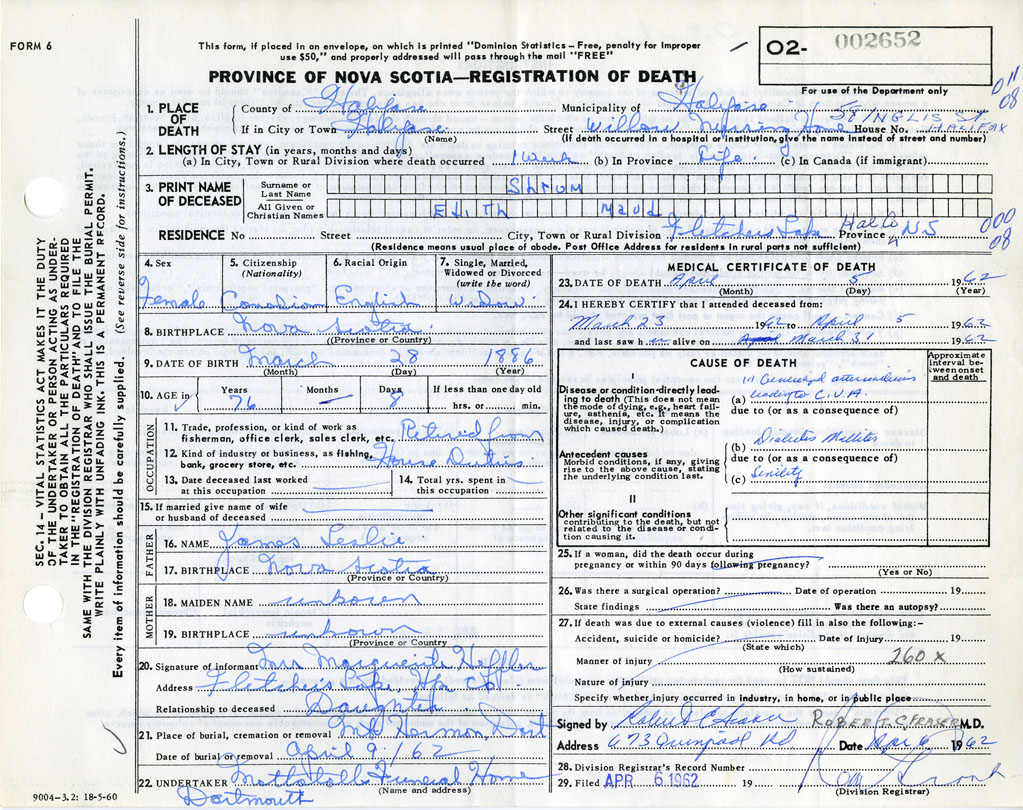 FORM 6
This form, if placed in an envelope, on which is printed "Dominion Statistics – Free, penalty for improper
use $50," and properly addressed will pass through the mail "FREE"
O2- 002652
PROVINCE OF NOVA SCOTIA—REGISTRATION OF DEATH
For use of the Department only
011
08
1. PLACE OF DEATH
County of Halifax Municipality of Halifax 581 INGLIS ST
If in City or Town Halifax Street Willow Nursing Home House No. HALIFAX
(Name) (If death occurred in hospital or institution, give the name instead of street and number)
2. LENGTH OF STAY (in years, months and days)
(a) In City, Town or Rural Division where death occurred 1 week (b) In Province Life (c) In Canada (if immigrant)
3. PRINT NAME OF DECEASED
Surname or Last Name Shrum
All Given or Christian Names Edith Maud
RESIDENCE No Street City, Town or Rural Division Fletchers Lake Hal Co Province NS
000
08
(Residence means usual place of abode. Post Office Address for residents in rural parts not sufficient)
4. Sex
Female
5. Citizenship (Nationality)
Canadian
6. Racial Origin
English
7. Single, Married, Widowed or Divorced (write the word)
Widow
8. BIRTHPLACE Nova Scotia
(Province or Country)
9. DATE OF BIRTH March 28 1886
(Month) (Day) (Year)
10. AGE in
Years 76
Months
Days 8
If less than one day old
hrs. or min.
OCCUPATION
11. Trade, profession, or kind of work as
fisherman, office clerk, sales clerk, etc. Retired from
12. Kind of industry or business, as fishing,
bank, grocery store, etc. House Duties
13. Date deceased last worked
at this occupation
14. Total yrs. spent in
this occupation
15. If married give name of wife
or husband of deceased
FATHER
16. NAME James Leslie
17. BIRTHPLACE Nova Scotia
(Province or Country)
MOTHER
18. MAIDEN NAME unknown
19. BIRTHPLACE unknown
(Province or Country)
20. Signature of informant Mrs Marguerite Heffler
Address Fletchers Lake, Hfx Co
Relationship to deceased Daughter
21. Place of burial, cremation or removal Mt Hermon, Dart
Date of burial or removal April 9/62
22. UNDERTAKER Funeral Home
(Name and address)
Dartmouth
9004-3.2: 18-5-60
MEDICAL CERTIFICATE OF DEATH
23. DATE OF DEATH April 5 1962
(Month) (Day) (Year)
24. I HEREBY CERTIFY that I attended deceased from:
March 23 1962 to April 5 1962
and last saw h er alive on March 31 1962
CAUSE OF DEATH
Approximate interval between onset and death
I
Disease or condition directly leading to death (This does not mean the mode of dying, e.g., heart failure, asthenia, etc. It means the disease, injury, or complication which caused death.)
(a) Generalized arteriosclerosis
C.V.A.
due to (or as a consequence of)
Antecedent causes
Morbid conditions, if any, giving rise to the above cause, stating the underlying condition last.
(b) Diabetes Mellitus
due to (or as a consequence of)
(c) Senility
II
Other significant conditions
contributing to the death, but not related to the disease or condition causing it.
25. If a woman, did the death occur during
pregnancy or within 90 days following pregnancy?
(Yes or No)
26. Was there a surgical operation? Date of operation 19
State findings Was there an autopsy?
27. If death was due to external causes (violence) fill in also the following:–
Accident, suicide or homicide? Date of injury 19
(State which)
Manner of injury 260 x
(How sustained)
Nature of injury
Specify whether injury occurred in industry, in home, or in public place
Signed by Robert C Fraser ROBERT C FRASER M.D.
Address 673 Quinpool Rd Date Apr 6 1962
28. Division Registrar's Record Number
29. Filed APR 6 1962 19
(Division Registrar)
SEC. 14 – VITAL STATISTICS ACT MAKES IT THE DUTY
OF THE UNDERTAKER OR PERSON ACTING AS UNDERTAKER TO OBTAIN ALL THE PARTICULARS REQUIRED
IN THE "REGISTRATION OF DEATH" AND TO FILE THE
SAME WITH THE DIVISION REGISTRAR WHO SHALL ISSUE THE BURIAL PERMIT.
WRITE PLAINLY WITH UNFADING INK. THIS IS A PERMANENT RECORD.
Every item of information should be carefully supplied. (See reverse side for instructions.)